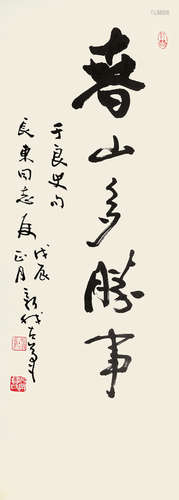 春山多勝事
于良史句
東同志
戊辰
正月新我左筆